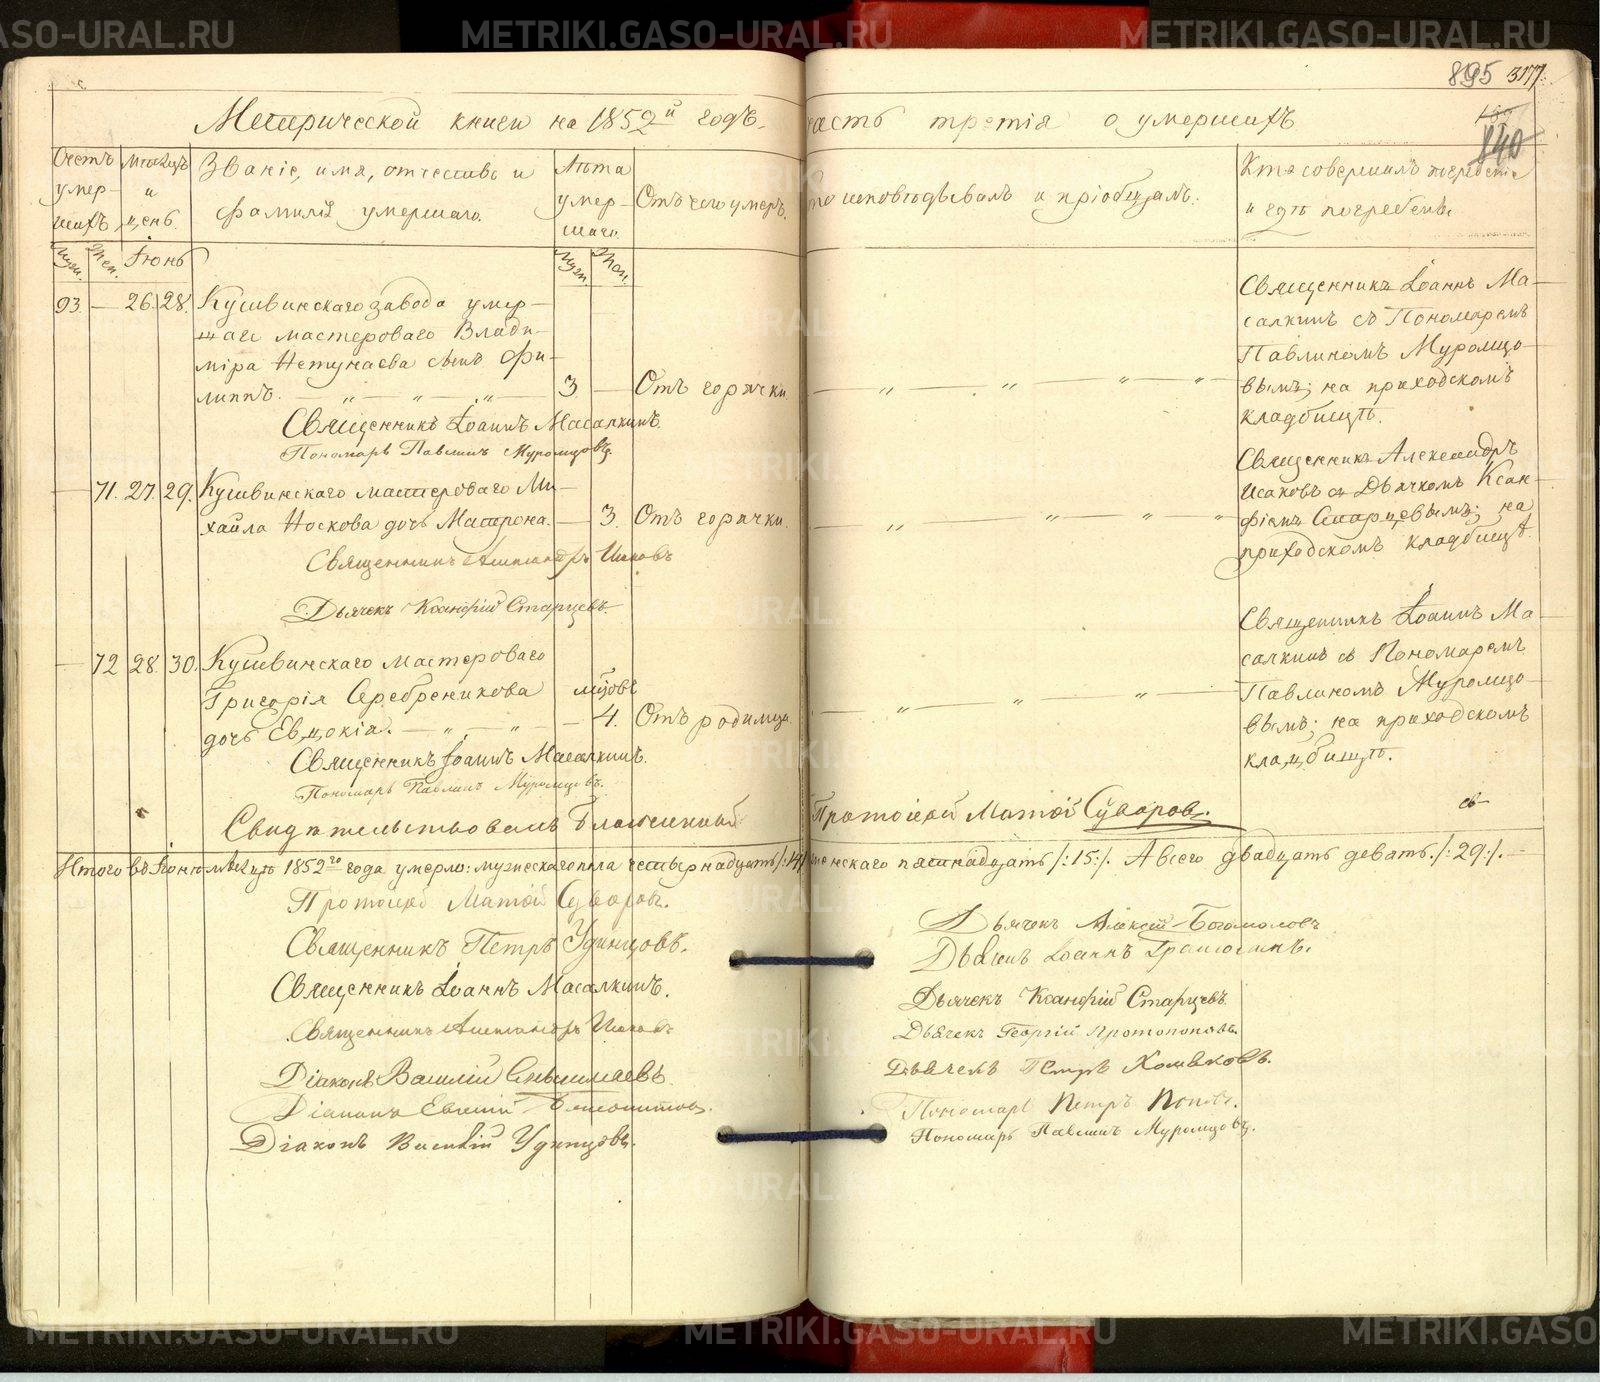 METRIKI.GASO-URAL.RU
895 317.
840
Метрической книги на 1852й годъ,
часть третія о умершихъ
Счетъ умершихъ
Мѣсяцъ и день.
Званіе, имя, отчество и фамилія умершаго.
Лѣта умершаго.
Отъ чего умеръ.
Кто исповѣдывалъ и пріобщалъ.
Кто совершилъ погребеніе и гдѣ погребены
Муж. Жен. Іюнь
Муж. Жен.
93. — 26. 28. Кушвинскаго завода умер-
шаго мастероваго Влади-
міра Нетунаева сынъ Фи-
липпъ. — „ — „ — „ — 3 — Отъ горячки.
— „ — „ — „ — „ —
Священникъ Іоаннъ Ма-
салкинъ съ Пономаремъ
Павлиномъ Муромцо-
вымъ; на приходскомъ
кладбищѣ.
Священникъ Іоаннъ Масалкинъ.
Пономарь Павлинъ Муромцовъ.
— 71. 27. 29. Кушвинскаго мастероваго Ми-
хаила Носкова дочь Матрона. — 3. Отъ горячки.
— „ — „ — „ — „
Священникъ Александръ
Исаковъ съ Дьячкомъ Ксан-
фіемъ Старцевымъ; на
приходскомъ кладбищѣ.
Священникъ Александръ Исаковъ
Дьячекъ Ксанфій Старцевъ.
— 72 28. 30. Кушвинскаго мастероваго
Григорія Серебреникова
дочь Евдокія. — „ — „ — — 4. Отъ родимца.
— „ — „ — „ —
Священникъ Іоаннъ Ма-
салкинъ съ Пономаремъ
Павлиномъ Муромцо-
вымъ; на приходскомъ
кладбищѣ.
Священникъ Іоаннъ Масалкинъ.
Пономарь Павлинъ Муромцовъ.
Свидѣтельствовалъ Благочинный Протоіерей Матѳій Суворовъ.
Итого въ Іюнѣ мѣсяцѣ 1852го года умерло: мужескаго пола четырнадцать /:14:/ женскаго пятнадцать /:15:/. А всего двадцать девять. /:29:/. —
Протоіерей Матѳій Суворовъ.
Священникъ Петръ Удинцовъ.
Священникъ Іоаннъ Масалкинъ.
Священникъ Александръ Исаковъ
Діаконъ Василій
Діаконъ Евгеній
Діаконъ Василій Удинцовъ.
Дьячекъ Алексѣй Богомоловъ
Дьячекъ Іоаннъ
Дьячекъ Ксанфій Старцевъ.
Дьячекъ Георгій Протопоповъ.
Дьячекъ Петръ Хомяковъ.
Пономарь Петръ Поповъ.
Пономарь Павлинъ Муромцовъ.